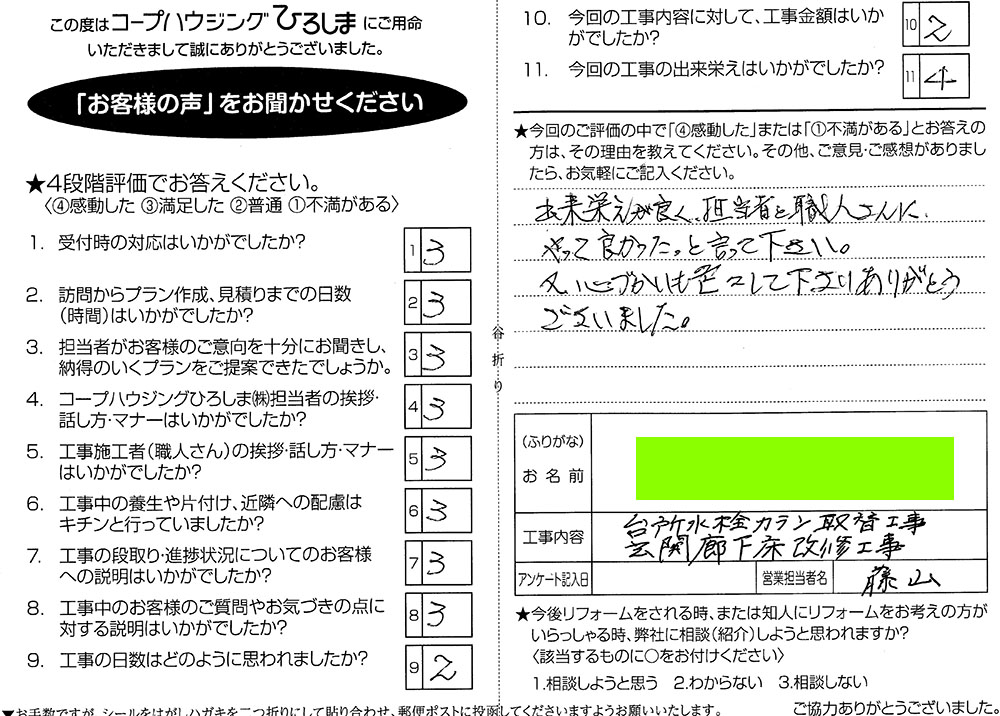 この度はコープハウジングひろしまにご用命
いただきまして誠にありがとうございました。
「お客様の声」をお聞かせください
★4段階評価でお答えください。
〈④感動した ③満足した ②普通 ①不満がある〉
1. 受付時の対応はいかがでしたか?
1 3
2. 訪問からプラン作成、見積りまでの日数
(時間)はいかがでしたか?
2 3
3. 担当者がお客様のご意向を十分にお聞きし、
納得のいくプランをご提案できたでしょうか。
3 3
4. コープハウジングひろしま㈱担当者の挨拶・
話し方・マナーはいかがでしたか?
4 3
5. 工事施工者(職人さん)の挨拶・話し方・マナー
はいかがでしたか?
5 3
6. 工事中の養生や片付け、近隣への配慮は
キチンと行っていましたか?
6 3
7. 工事の段取り・進捗状況についてのお客様
への説明はいかがでしたか?
7 3
8. 工事中のお客様のご質問やお気づきの点に
対する説明はいかがでしたか?
8 3
9. 工事の日数はどのように思われましたか?
9 2
▼お手数ですが、シールをはがしハガキを二つ折りにして貼り合わせ、郵便ポストに投函してくださいますようお願いいたします。
谷折り
10. 今回の工事内容に対して、工事金額はいか
がでしたか?
10 2
11. 今回の工事の出来栄えはいかがでしたか?
11 4
★今回のご評価の中で「④感動した」または「①不満がある」とお答えの
方は、その理由を教えてください。その他、ご意見・ご感想がありまし
たら、お気軽にご記入ください。
出来栄えが良く、担当者と職人さんに、
やって良かったっと言って下さい。
又、心づかいも色々して下さりありがとう
ございました。
(ふりがな)
お名前
工事内容
台所水栓カラン取替工事
玄関廊下床改修工事
アンケート記入日
営業担当者名
藤山
★今後リフォームをされる時、または知人にリフォームをお考えの方が
いらっしゃる時、弊社に相談(紹介)しようと思われますか?
〈該当するものに○をお付けください〉
1.相談しようと思う 2.わからない 3.相談しない
ご協力ありがとうございました。